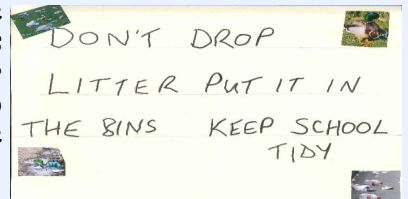 DON'T DROP
LITTER PUT IT IN
THE BINS KEEP SCHOOL
TIDY